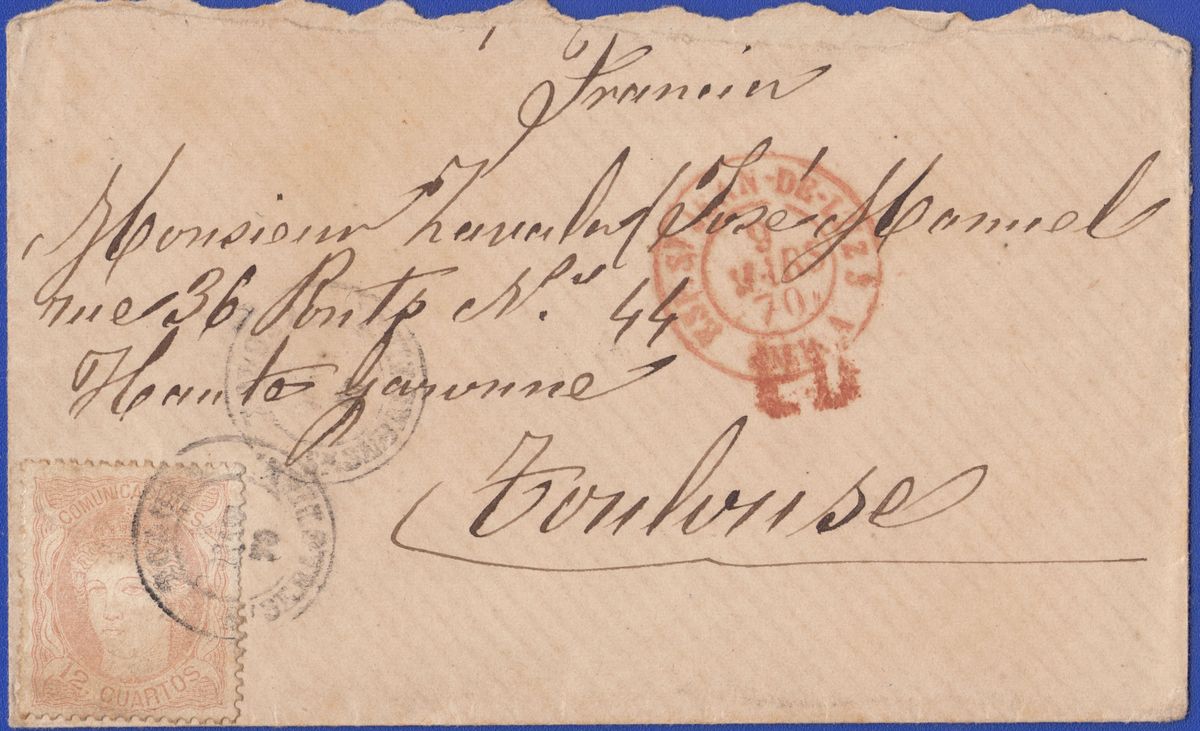 Francia
Monsieur Zavala José Manuel
rue 36 Ponts Nr. 44
Haute garonne
Toulouse
ESP. ST JEAN-DE-LUZ
9
MARS
70
PD
COMUNICACIONES
12 CUARTOS